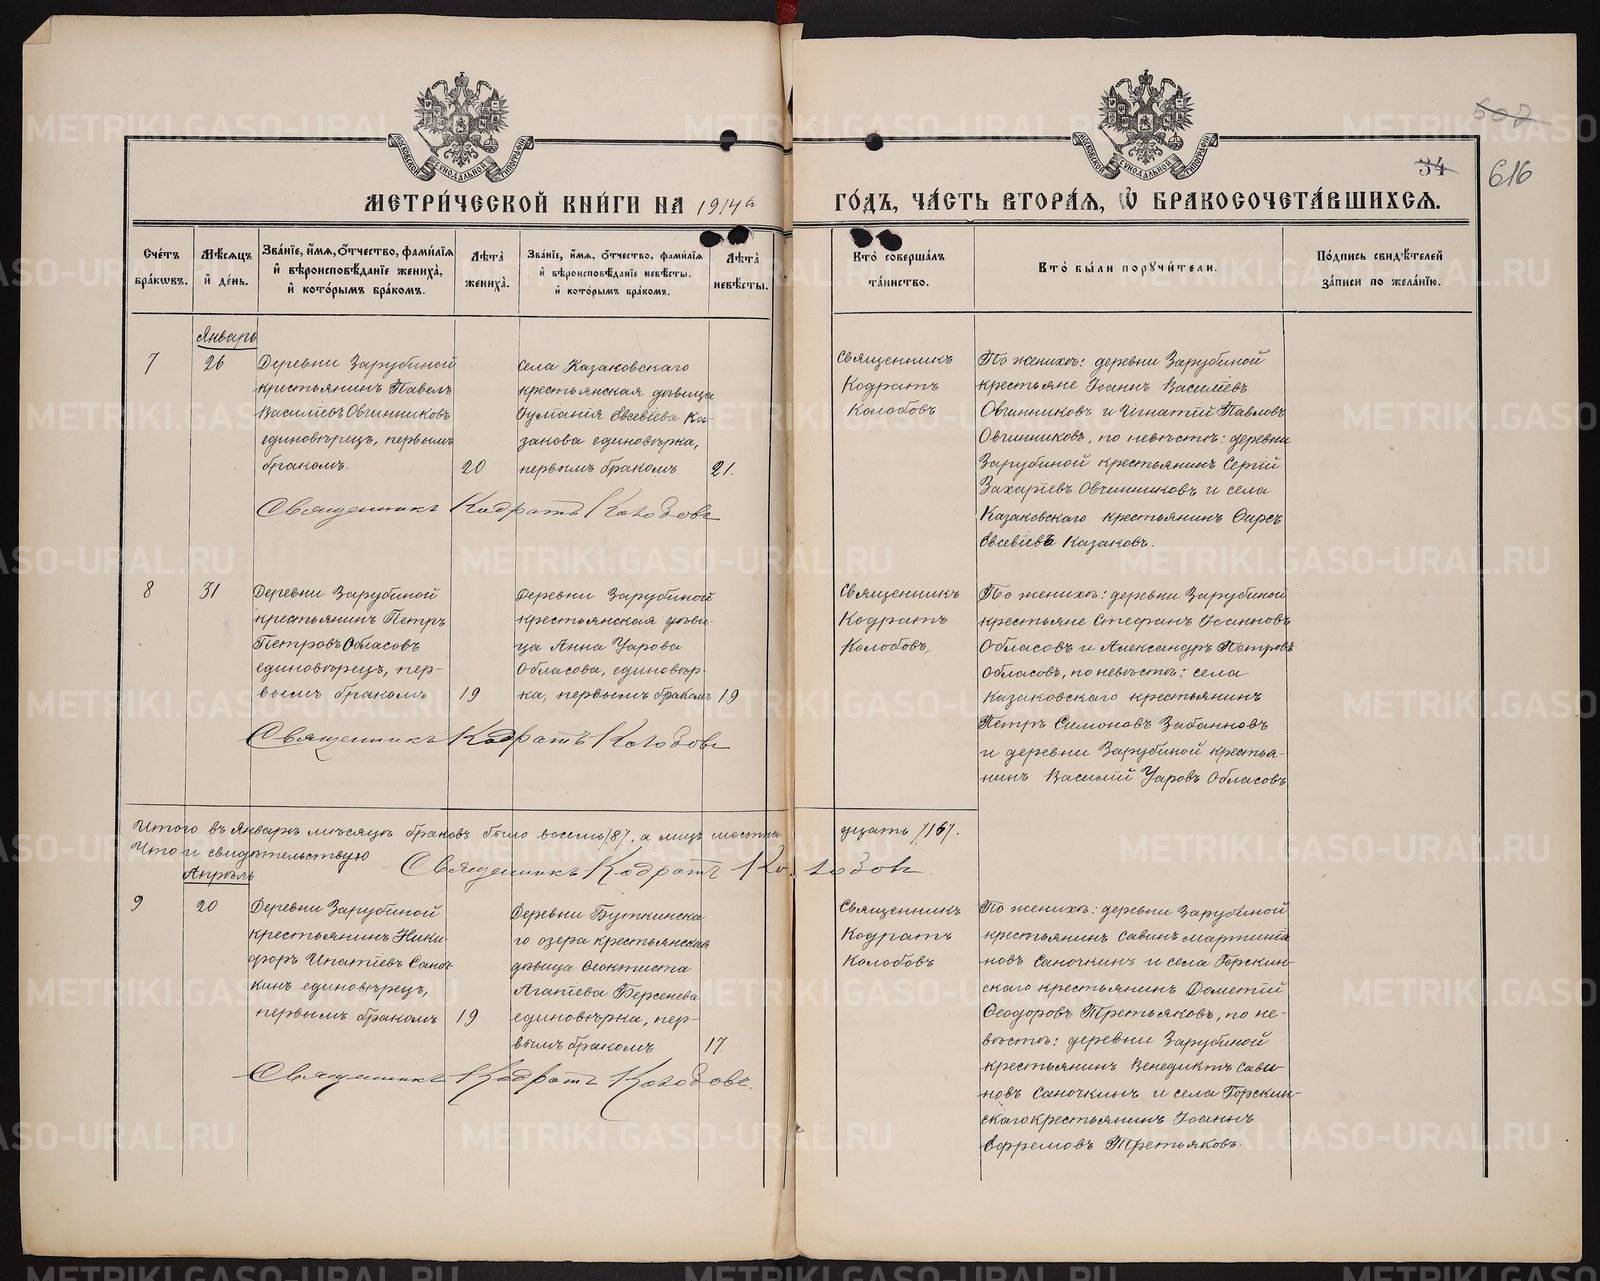 507
34
616
МОСКОВСКОЙ СѴНОДАЛЬНОЙ ТИПОГРАФІИ
МОСКОВСКОЙ СѴНОДАЛЬНОЙ ТИПОГРАФІИ
МЕТРИ́ЧЕСКОЙ КНИ́ГИ НА 1914й ГО́ДЪ, ЧА́СТЬ ВТОРА́Я, Ѽ БРАКОСОЧЕТА́ВШИХСЯ.
Сче́тъ бра́кѡвъ.
Мѣ́сяцъ и де́нь.
Зва́нїе, и́мя, о́тчество, фами́лїя и вѣроисповѣ́данїе жениха̀, и кото́рымъ бра́комъ.
Лѣта̀ жениха̀.
Зва́нїе, и́мя, о́тчество, фами́лїя и вѣроисповѣ́данїе невѣ́сты. и кото́рымъ бра́комъ.
Лѣта̀ невѣ́сты.
Кто̀ соверша́лъ та́инство.
Кто̀ бы́ли порꙋчи́тели.
По́дпись свидѣ́телей за́писи по жела́нїю.
Январь
7
26
Деревни Зарубиной
крестьянинъ Павелъ
Васильевъ Овчинниковъ
единовѣрецъ, первымъ
бракомъ.
20
села Казаковскаго
крестьянская дѣвица
Евсевіева Ка-
закова единовѣрка,
первымъ бракомъ
21.
Священникъ
Кодратъ
Колобовъ
По женихѣ: деревни Зарубиной
крестьяне Іоаннъ Василіевъ
Овчинниковъ и Игнатій Павловъ
Овчинниковъ, по невѣстѣ: деревни
Зарубиной крестьянинъ Сергій
Захаріевъ Овчинниковъ и села
Казаковскаго крестьянинъ Ѳирсъ
Евсевіевъ Казаковъ.
Священникъ Кодратъ Колобовъ
8
31
Деревни Зарубиной
крестьянинъ Петръ
Петровъ Обласовъ
единовѣрецъ, пер-
вымъ бракомъ
19
Деревни Зарубиной
крестьянская дѣви-
ца Анна Уарова
Обласова, единовѣр-
ка, первымъ бракомъ
19
Священникъ
Кодратъ
Колобовъ,
По женихѣ: деревни Зарубиной
крестьяне Стефанъ Іоанновъ
Обласовъ и Александръ Петровъ
Обласовъ, по невѣстѣ: села
Казаковскаго крестьянинъ
Петръ Симоновъ
и деревни Зарубиной крестья-
нинъ Василій Уаровъ Обласовъ
Священникъ Кодратъ Колобовъ
Итого въ Январѣ мѣсяцѣ браковъ было восемь /8/, а лицъ шестнадцать /16/.
Что и свидѣтельствую
Священникъ Кодратъ Колобовъ.
Апрѣль
9
20
Деревни Зарубиной
крестьянинъ Ники-
форъ Ипатіевъ Саноч-
кинъ единовѣрецъ,
первымъ бракомъ
19
Деревни Буткинска
го озера крестьянская
дѣвица Ѳеоктиста
Агапіева Берсенева
единовѣрка, пер-
вымъ бракомъ
17.
Священникъ
Кодратъ
Колобовъ
По женихѣ: деревни Зарубиной
крестьянинъ Савинъ Мартиніа
новъ Саночкинъ и села Горскин-
скаго крестьянинъ Дометій
Ѳеодоровъ Третьяковъ, по не-
вѣстѣ: деревни Зарубиной
крестьянинъ Венедиктъ Сави-
новъ Саночкинъ и села Горскин-
скаго крестьянинъ Іоаннъ
Ефремовъ Третьяковъ.
Священникъ Кодратъ Колобовъ.
METRIKI.GASO-URAL.RU